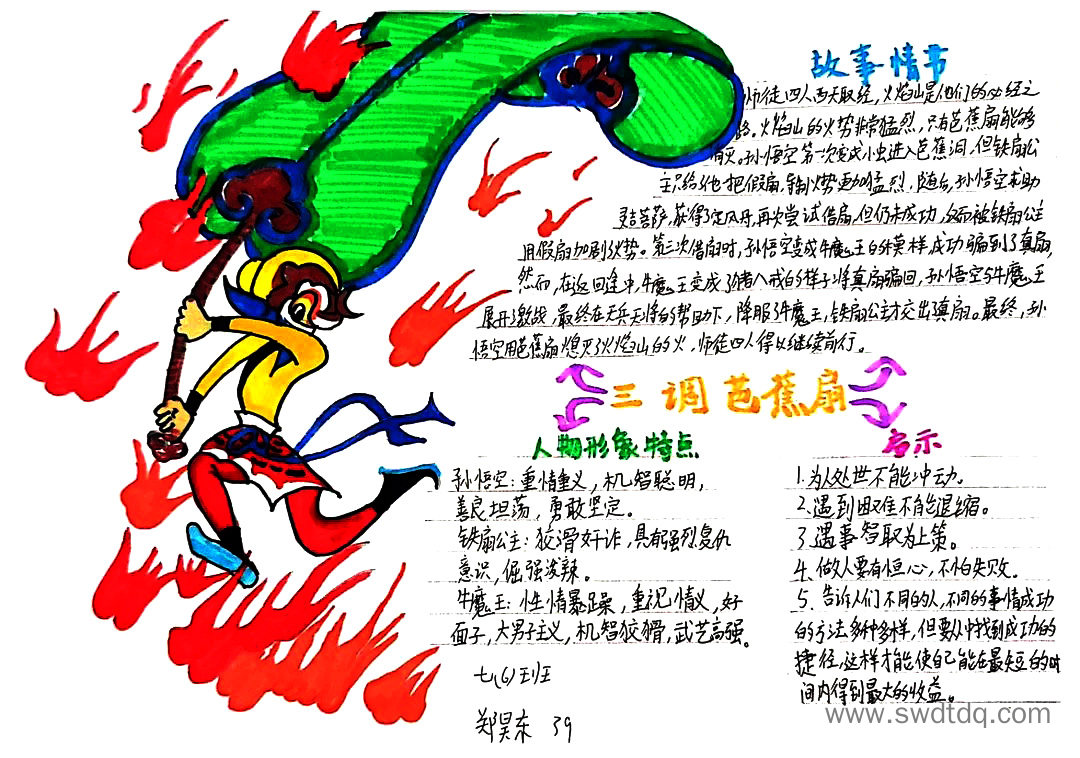 故事情节
师徒四人西天取经，火焰山是他们的必经之
路。火焰山的火势非常猛烈，只有芭蕉扇能够
消灭。孙悟空第一次变成小虫进入芭蕉洞，但铁扇公
主只给他一把假扇，导制火势更加猛烈，随后，孙悟空求助
灵吉菩萨，获得了定风丹，再次尝试借扇，但仍未成功，反而被铁扇公主
用假扇加剧火势。第三次借扇时，孙悟空变成牛魔王的模样成功骗到了真扇，
然而，在返回途中，牛魔王变成了猪八戒的样子将真扇骗回，孙悟空与牛魔王
展开了激战，最终在天兵天将的帮助下，降服了牛魔王，铁扇公主才交出真扇。最终，孙
悟空用芭蕉扇熄灭了火焰山的火，师徒四人得以继续前行。
三调芭蕉扇
人物形象特点
孙悟空：重情重义，机智聪明，
善良坦荡，勇敢坚定。
铁扇公主：狡猾奸诈，具有强烈复仇
意识，倔强泼辣。
牛魔王：性情暴躁，重视情义，好
面子，大男子主义，机智狡猾，武艺高强。
七(6)班
郑昊东 39
启示
1.为人处世不能冲动。
2.遇到困难不能退缩。
3.遇事智取为上策。
4、做人要有恒心，不怕失败。
5、告诉人们不同的人，不同的事情成功
的方法多种多样，但要从中找到成功的
捷径，这样才能使自己能在最短的时
间内得到最大的收益。
www.swdtdq.com